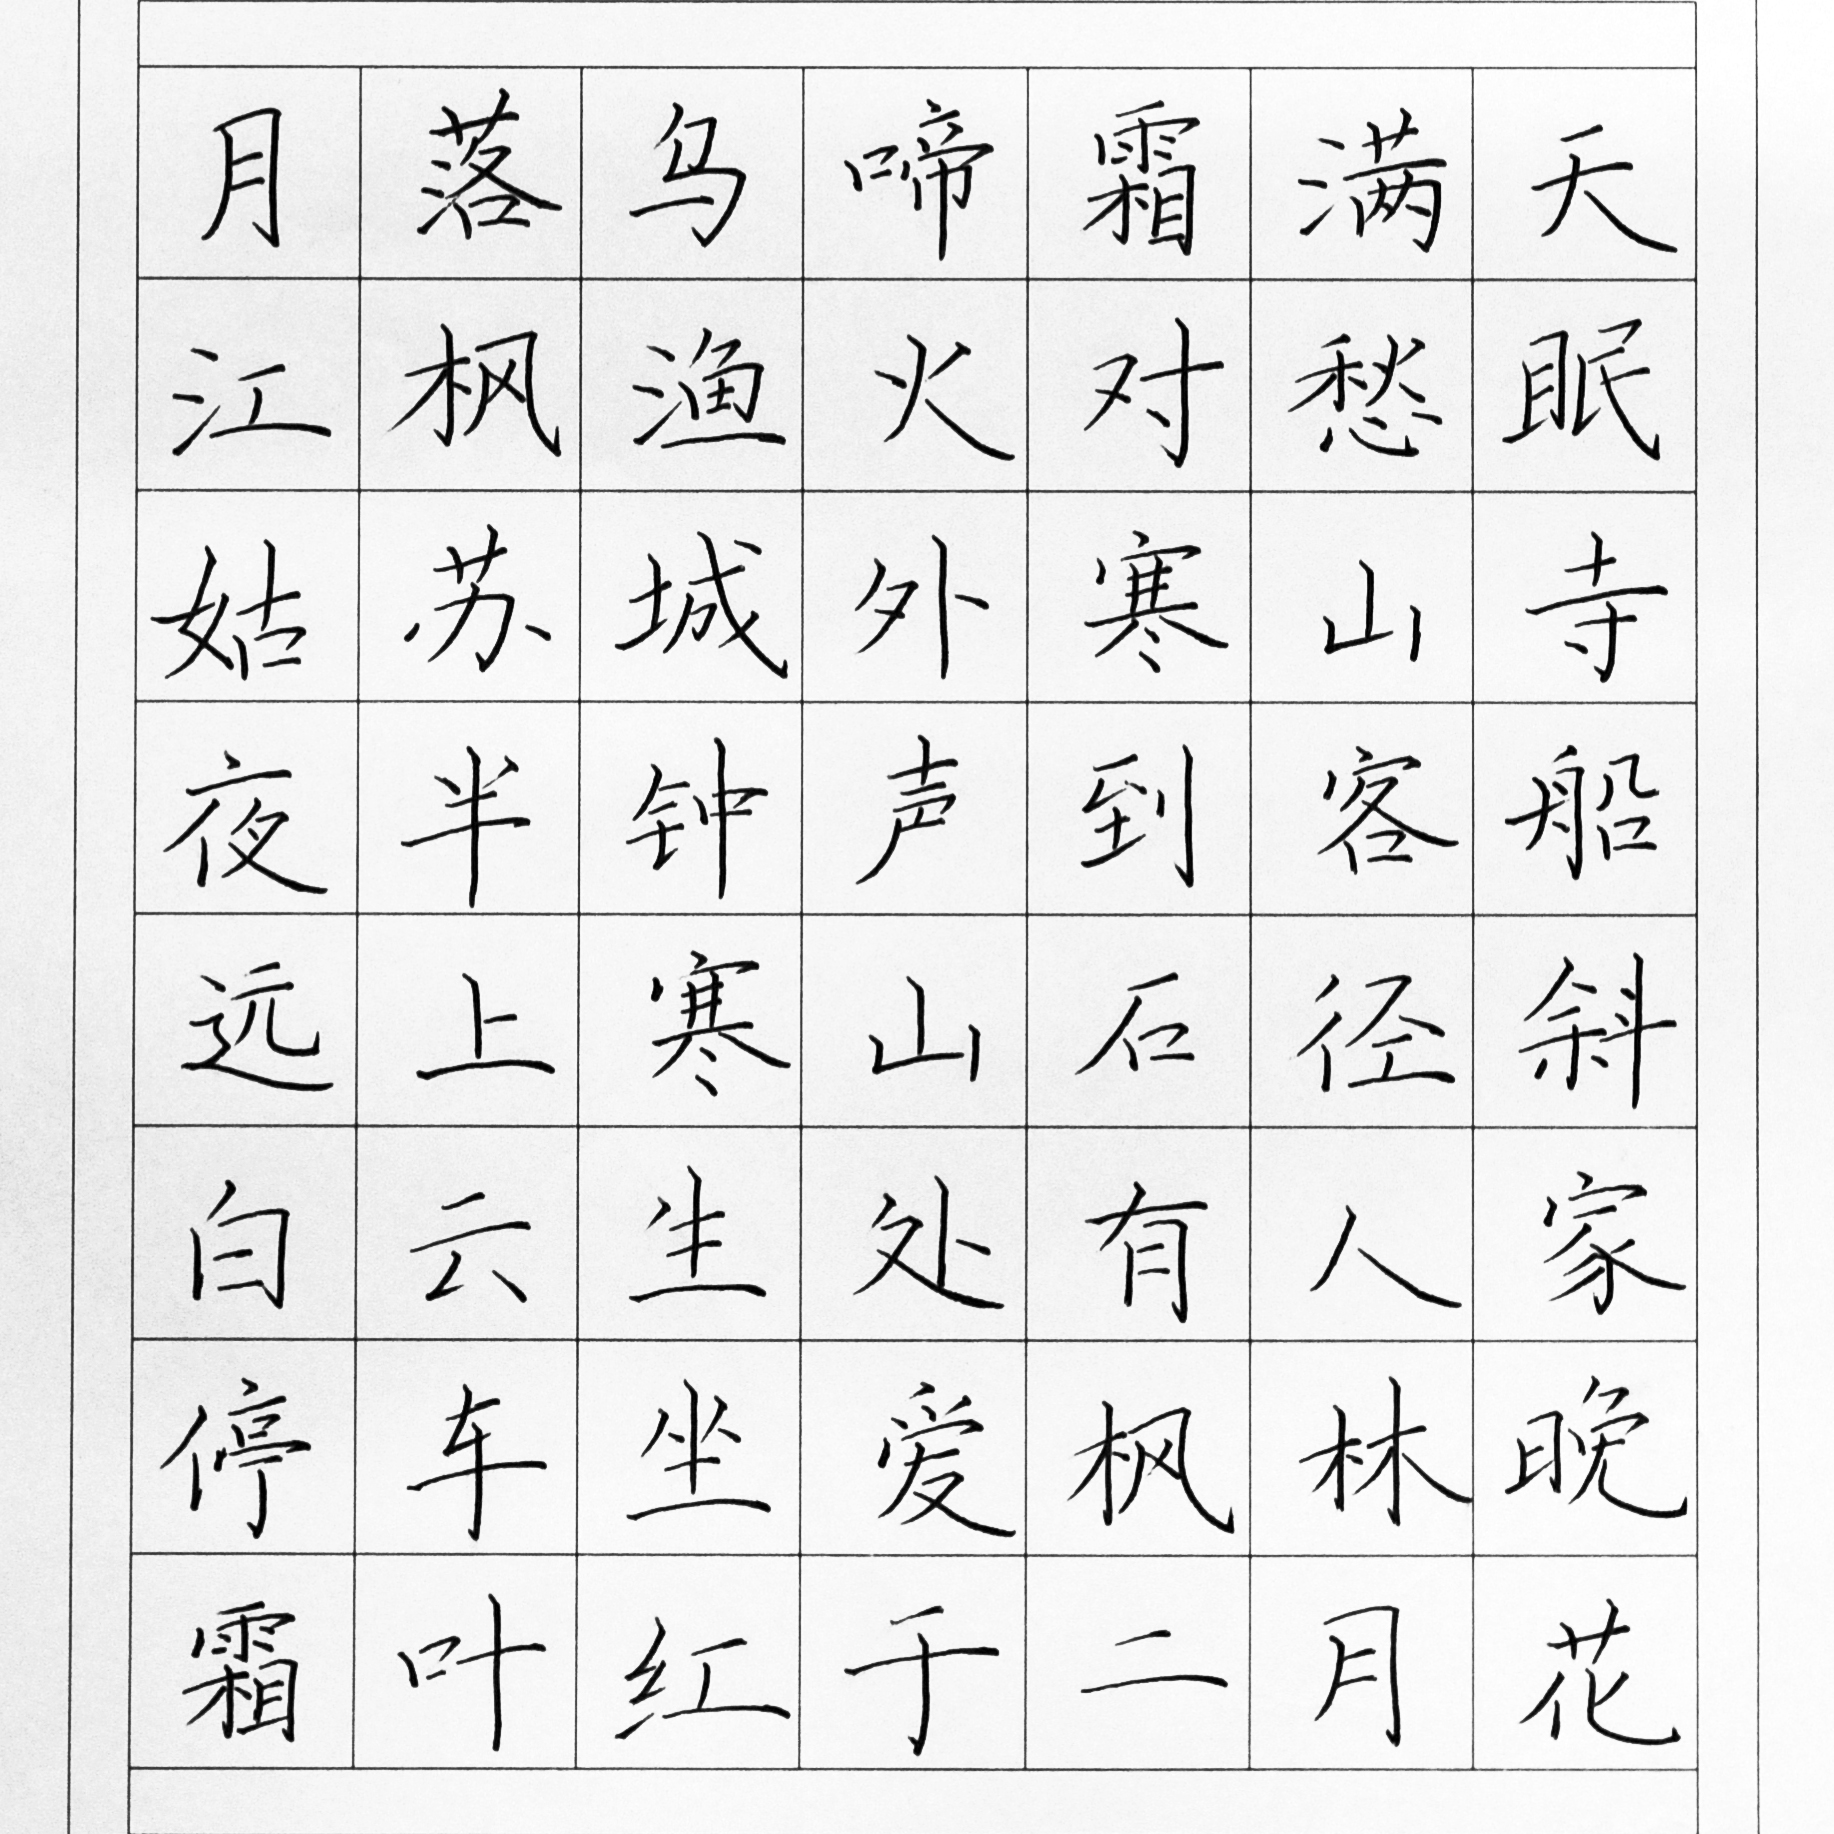 月落乌啼霜满天
江枫渔火对愁眠
姑苏城外寒山寺
夜半钟声到客船
远上寒山石径斜
白云生处有人家
停车坐爱枫林晚
霜叶红于二月花